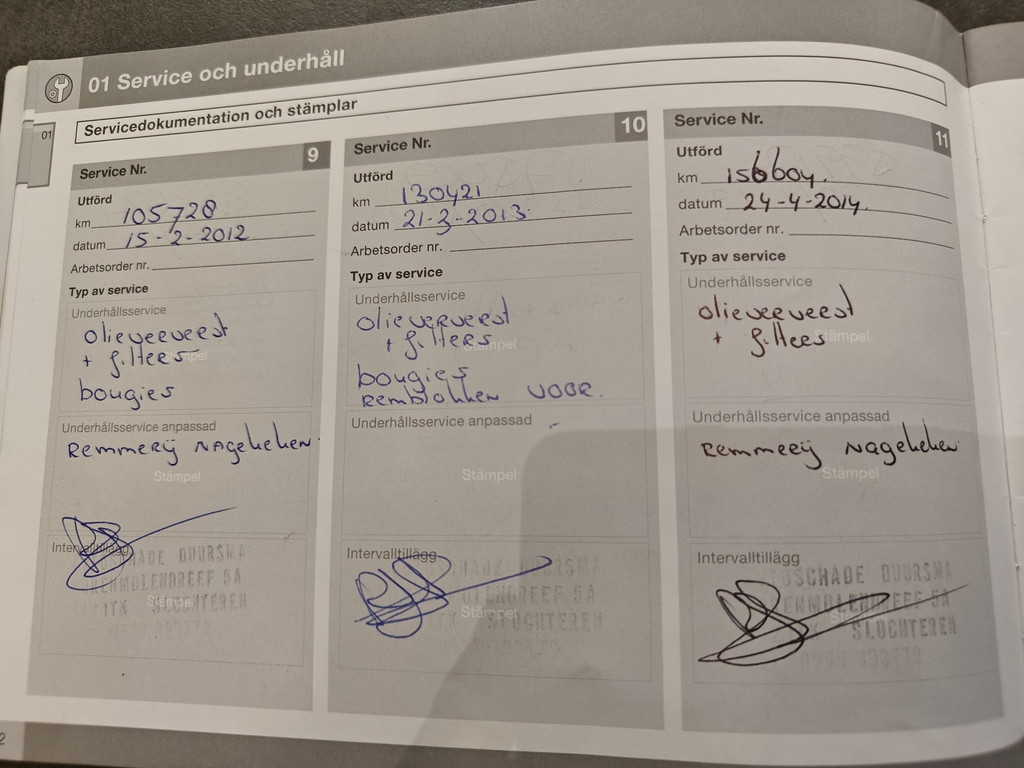 01 Service och underhåll
01
Servicedokumentation och stämplar
Service Nr. 9
Utförd
km 105728
datum 15-2-2012
Arbetsorder nr.
Typ av service
Underhållsservice
olieververst
+ filters
bougies
Underhållsservice anpassad
Remmerij nagekeken
Stämpel
Intervalltillägg
DUURSMA
5A
Stämpel
SLOCHTEREN
Service Nr. 10
Utförd
km 130421
datum 21-3-2013.
Arbetsorder nr.
Typ av service
Underhållsservice
olieververst
+ filters
Stämpel
bougies
Remblokken voor.
Underhållsservice anpassad
Stämpel
Intervalltillägg
DUURSMA
5A
Stämpel
SLOCHTEREN
Service Nr. 11
Utförd
km 156604.
datum 24-4-2014.
Arbetsorder nr.
Typ av service
Underhållsservice
olieververst
+ filters
Stämpel
Underhållsservice anpassad
Remmerij nagekeken
Stämpel
Intervalltillägg
OSCHADE DUURSMA
ENMOLENDREEF 5A
SLOCHTEREN
2